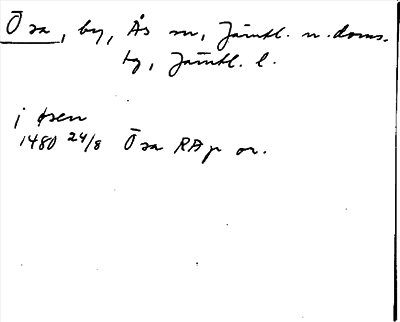 Ösa, by, Ås sn, Jämtl. n. doms.
by, Jämtl. l.
i øsen
1480 24/8 Ösa RAp or.